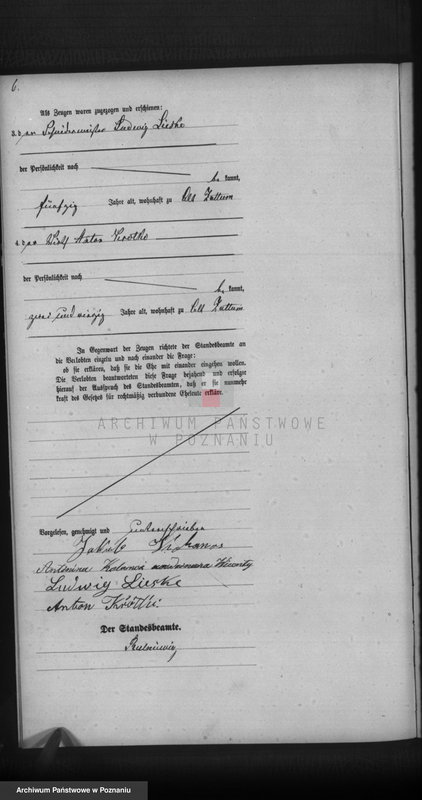 6.
Als Zeugen waren zugezogen und erschienen:
3. der Schneidermeister Ludwig Lieske
der Persönlichkeit nach
bekannt,
fünfzig Jahre alt, wohnhaft zu Alt
4. der Anton
der Persönlichkeit nach
bekannt,
zwei und vierzig Jahre alt, wohnhaft zu Alt
In Gegenwart der Zeugen richtete der Standesbeamte an
die Verlobten einzeln und nach einander die Frage:
ob sie erklären, daß sie die Ehe mit einander eingehen wollen.
Die Verlobten beantworteten diese Frage bejahend und erfolgte
hierauf der Ausspruch des Standesbeamten, daß er sie nunmehr
kraft des Gesetzes für rechtmäßig verbundene Eheleute erkläre.
ARCHIWUM PAŃSTWOWE
W POZNANIU
Vorgelesen, genehmigt und unterschrieben
Jakób
Antonina
Ludwig Lieske
Anton
Der Standesbeamte.
Archiwum Państwowe w Poznaniu